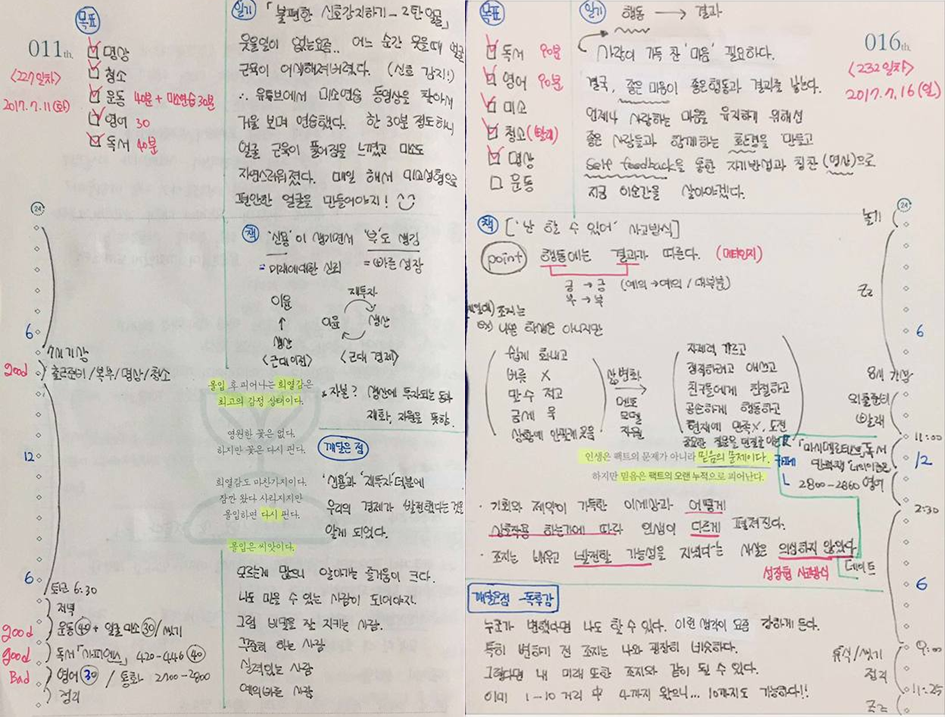 011th
<227일차>
2017.7.11(화)
목표
명상
청소
운동 40분 + 미소연습 30분
영어 30
독서 40분
일기 「불편한 신호감지하기 - 2탄 얼굴」
웃을일이 없는요즘.. 어느 순간 웃을때 얼굴
근육이 어색해져버렸다. (신호 감지!)
∴ 유튜브에서 미소연습 동영상을 찾아서
거울 보며 연습했다. 한 30분 정도하니
얼굴 근육이 풀어짐을 느꼈고 미소도
자연스러워졌다. 매일 해서 미소상으로
편안한 얼굴을 만들어야지!
책 '신용'이 생기면서 '부'도 생김
= 미래에대한 신뢰 = 빠른 성장
이윤
↑
생산
<근대이전>
재투자
이윤 생산
<근대 경제>
* 자본? 생산에 투자되는 돈과
재화, 자원을 뜻함.
몰입 후 피어나는 희열감은
최고의 감정 상태이다.
영원한 꽃은 없다.
하지만 꽃은 다시 핀다.
희열감도 마찬가지이다.
잠깐 왔다 사라지지만
몰입하면 다시 핀다.
몰입은 씨앗이다.
깨달은 점
'신용과 재투자' 덕분에
우리의 경제가 발전했다는 것을
알게 되었다.
모르는게 많으니 알아가는 즐거움이 크다.
나도 믿을 수 있는 사람이 되어야지.
그럼 비밀을 잘 지키는 사람.
꾸준히 하는 사람
실력있는 사람
예의바른 사람
24
6
7시 기상
good 출근준비/복습/명상/청소
12
6
퇴근 6:30
저녁
good 운동 40 + 얼굴 미소 30 / 씻기
good 독서「사피엔스」 420-446 40
Bad 영어 30 / 통화 2700-2800
정리
016th
<232일차>
2017.7.16(일)
목표
독서 90분
영어 90분
미소
청소(빨래)
명상
운동
일기 행동 → 결과
사랑이 가득 찬 '마음' 필요하다.
결국, 좋은 마음이 좋은행동과 결과를 낳는다.
언제나 사랑하는 마음을 유지하기 위해선
좋은 사람들과 함께하는 환경을 만들고
Self feedback을 통한 자기반성과 칭찬 (명상)으로
지금 이순간을 살아야겠다.
책 ['난 할 수 있어' 사고방식]
point 행동에는 결과가 따른다. (메타인지)
긍 → 긍 (예의→예의 / 대부분)
부 → 부
조지는
ex) 나쁜 학생은 아니지만
쉽게 화내고
버릇 X
말수 적고
상황에 안좋게 웃음
변화
멘토
모델
자율
자제력 기르고
경청하려고 애쓰고
친구들에게 친절하고
공손하게 행동하고
현재에 만족X, 도전
인생은 팩트의 문제가 아니라 믿음의 문제이다.
하지만 믿음은 팩트의 오랜 누적으로 피어난다.
· 기회와 제약이 가득한 이세상과 어떻게
상호작용 하는가에 따라 인생이 다르게 펼쳐진다.
· 조지는 배우고 발전할 가능성을 지녔다'는 사실은 의심하지 않았다.
성장형 사고방식
깨달은점 - 독후감
누군가 변했다면 나도 할 수 있다. 이런 생각이 요즘 강하게 든다.
특히 변하기 전 조지는 나와 굉장히 비슷하다.
그렇다면 내 미래 또한 조지와 같이 될 수 있다.
이미 1-10 거리 中 4까지 왔으니... 10까지도 가능하다!!
24
놀기
Zz
6
8시 기상
외출준비
빨래
11:00
12
카페
「마시멜로테스트」독서
2800-2860 영어
2:30
데이트
6
휴식/씻기
9:00
정리
11:25
Zz